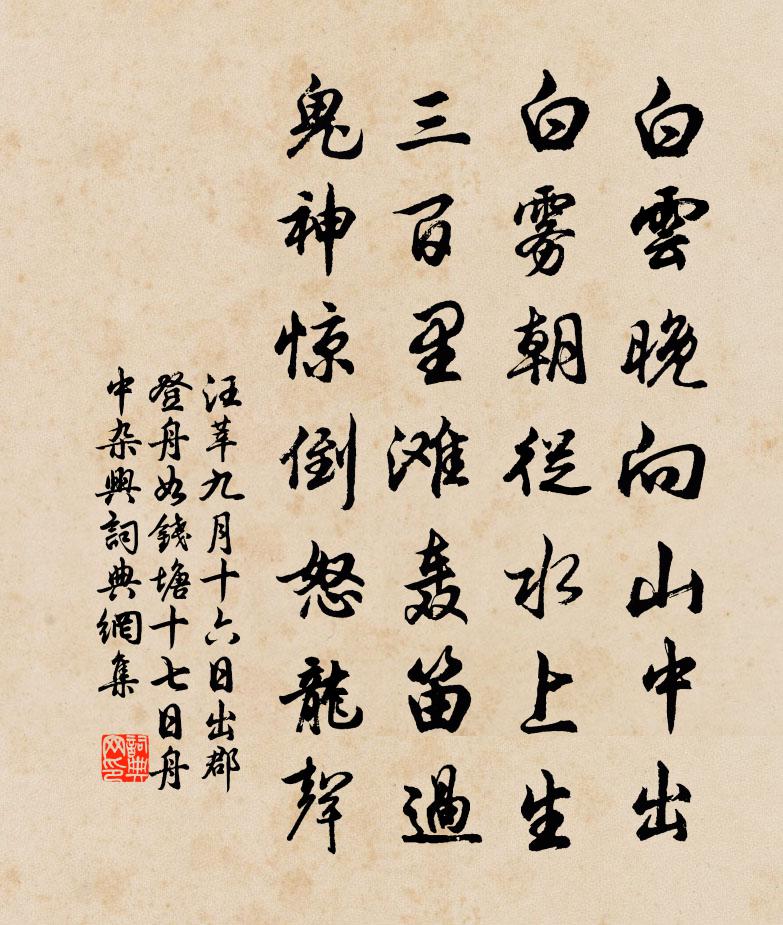 白雲晚向山中出
白雾朝從水上生
三百里滩轰笛過
鬼神惊倒怒龍聲
汪莘九月十六日出郡
登舟如錢塘十七日舟
中杂興詞典網集
詞典网印